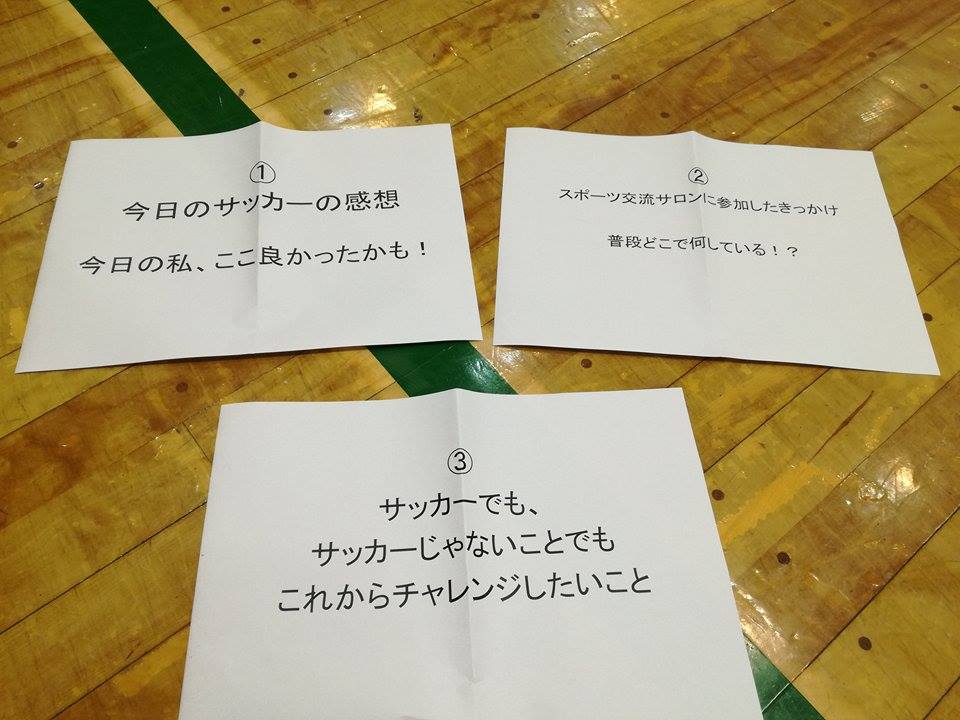 ①
今日のサッカーの感想
今日の私、ここ良かったかも！
②
スポーツ交流サロンに参加したきっかけ
普段どこで何している！？
③
サッカーでも、
サッカーじゃないことでも
これからチャレンジしたいこと